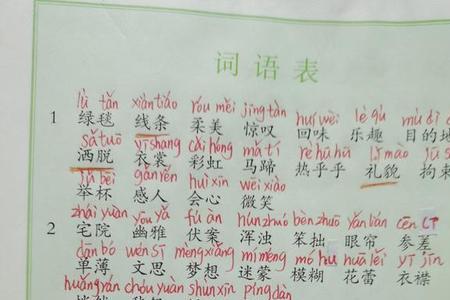 词语表
lǜ tǎn xiàntiáo róu měi jīngtàn huí wèi lè qù mù dì
1 绿毯 线条 柔美 惊叹 回味 乐趣 目的地
sǎ tuō yī shang cǎi hóng mǎ tí rè hū hū lǐ mào jū s
洒脱 衣裳 彩虹 马蹄 热乎乎 礼貌 拘束
jǔ bēi gǎn rén huì xīn wēi xiào
举杯 感人 会心 微笑
zhái yuàn yōu yǎ fú àn hún zhuó bèn zhuō yǎn lián cēn
2 宅院 幽雅 伏案 浑浊 笨拙 眼帘 参差
dān bó wén sī mèng xiǎng mí méng mó hu huā lěi yī jīn
单薄 文思 梦想 迷蒙 模糊 花蕾 衣襟
huāng yuán chóu yuàn shùn xīn píng dàn